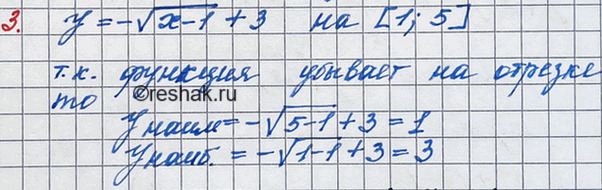 3. y = -√(x-1) + 3 на [1; 5]
т.к. функция убывает на отрезке
то ©reshak.ru
yнаим = -√(5-1) + 3 = 1
yнаиб. = -√(1-1) + 3 = 3